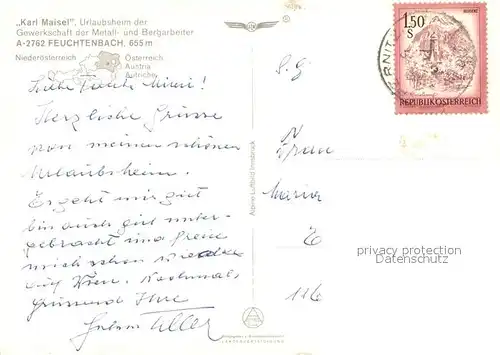 „Karl Maisel", Urlaubsheim der
Gewerkschaft der Metall- und Bergarbeiter
A-2762 FEUCHTENBACH, 655 m
Niederösterreich
Österreich
Austria
Autriche
Liebe Frau Mimi!
Herzliche Grüsse
von meinem schönen
Urlaubsheim.
Es geht mir gut
bin auch gut unter-
gebracht und freue
mich schon wieder
auf Wien. Nochmals
grüssend Ihre
Alpine Luftbild Innsbruck
S. g.
Frau
Maria
116
1.50
S
REPUBLIK ÖSTERREICH
privacy protection
Datenschutz